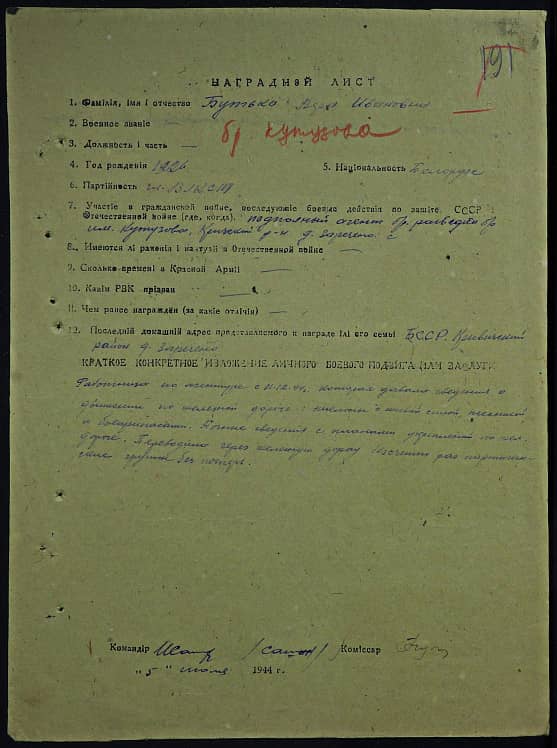 191
НАГРАДНОЙ ЛИСТ
1. Фамілія, імя і отчество Бутько Ивановна
2. Военное званіе —
бр Кутузова
3. Должность і часть —
4. Год рожденія 1926 5. Національность Белорус
6. Партійность чл. ВЛКСМ
7. Участіе в гражданской войне, последующіе боевые действія по защіте СССР і
Отечественной войне (где, когда). подпольный агент бр. разведки бр
им. Кутузова, р-н д. Заречено
8. Имеются лі раненія і контузіі в Отечественной войне —
9. Сколько времені в Красной Арміі —
10. Какім РВК прізван —
11. Чем ранее награжден (за какіе отлічія) —
12. Последній домашній адрес представляемого к награде ілі его семьі БССР, Кривичский
район д. Заречено
КРАТКОЕ КОНКРЕТНОЕ ИЗЛОЖЕНИЕ ЛИЧНОГО БОЕВОГО ПОДВИГА ИЛИ ЗАСЛУГИ
Работница по агентуре с которая давала сведения о
движении по железной дороге: с живой силой, техникой
и боеприпасами. сведения с планами укреплений по жел.
дороге. Переводила через железную дорогу раз партизан-
ские группы без потерь.
Командір Коміссар
"5" июля 1944 г.